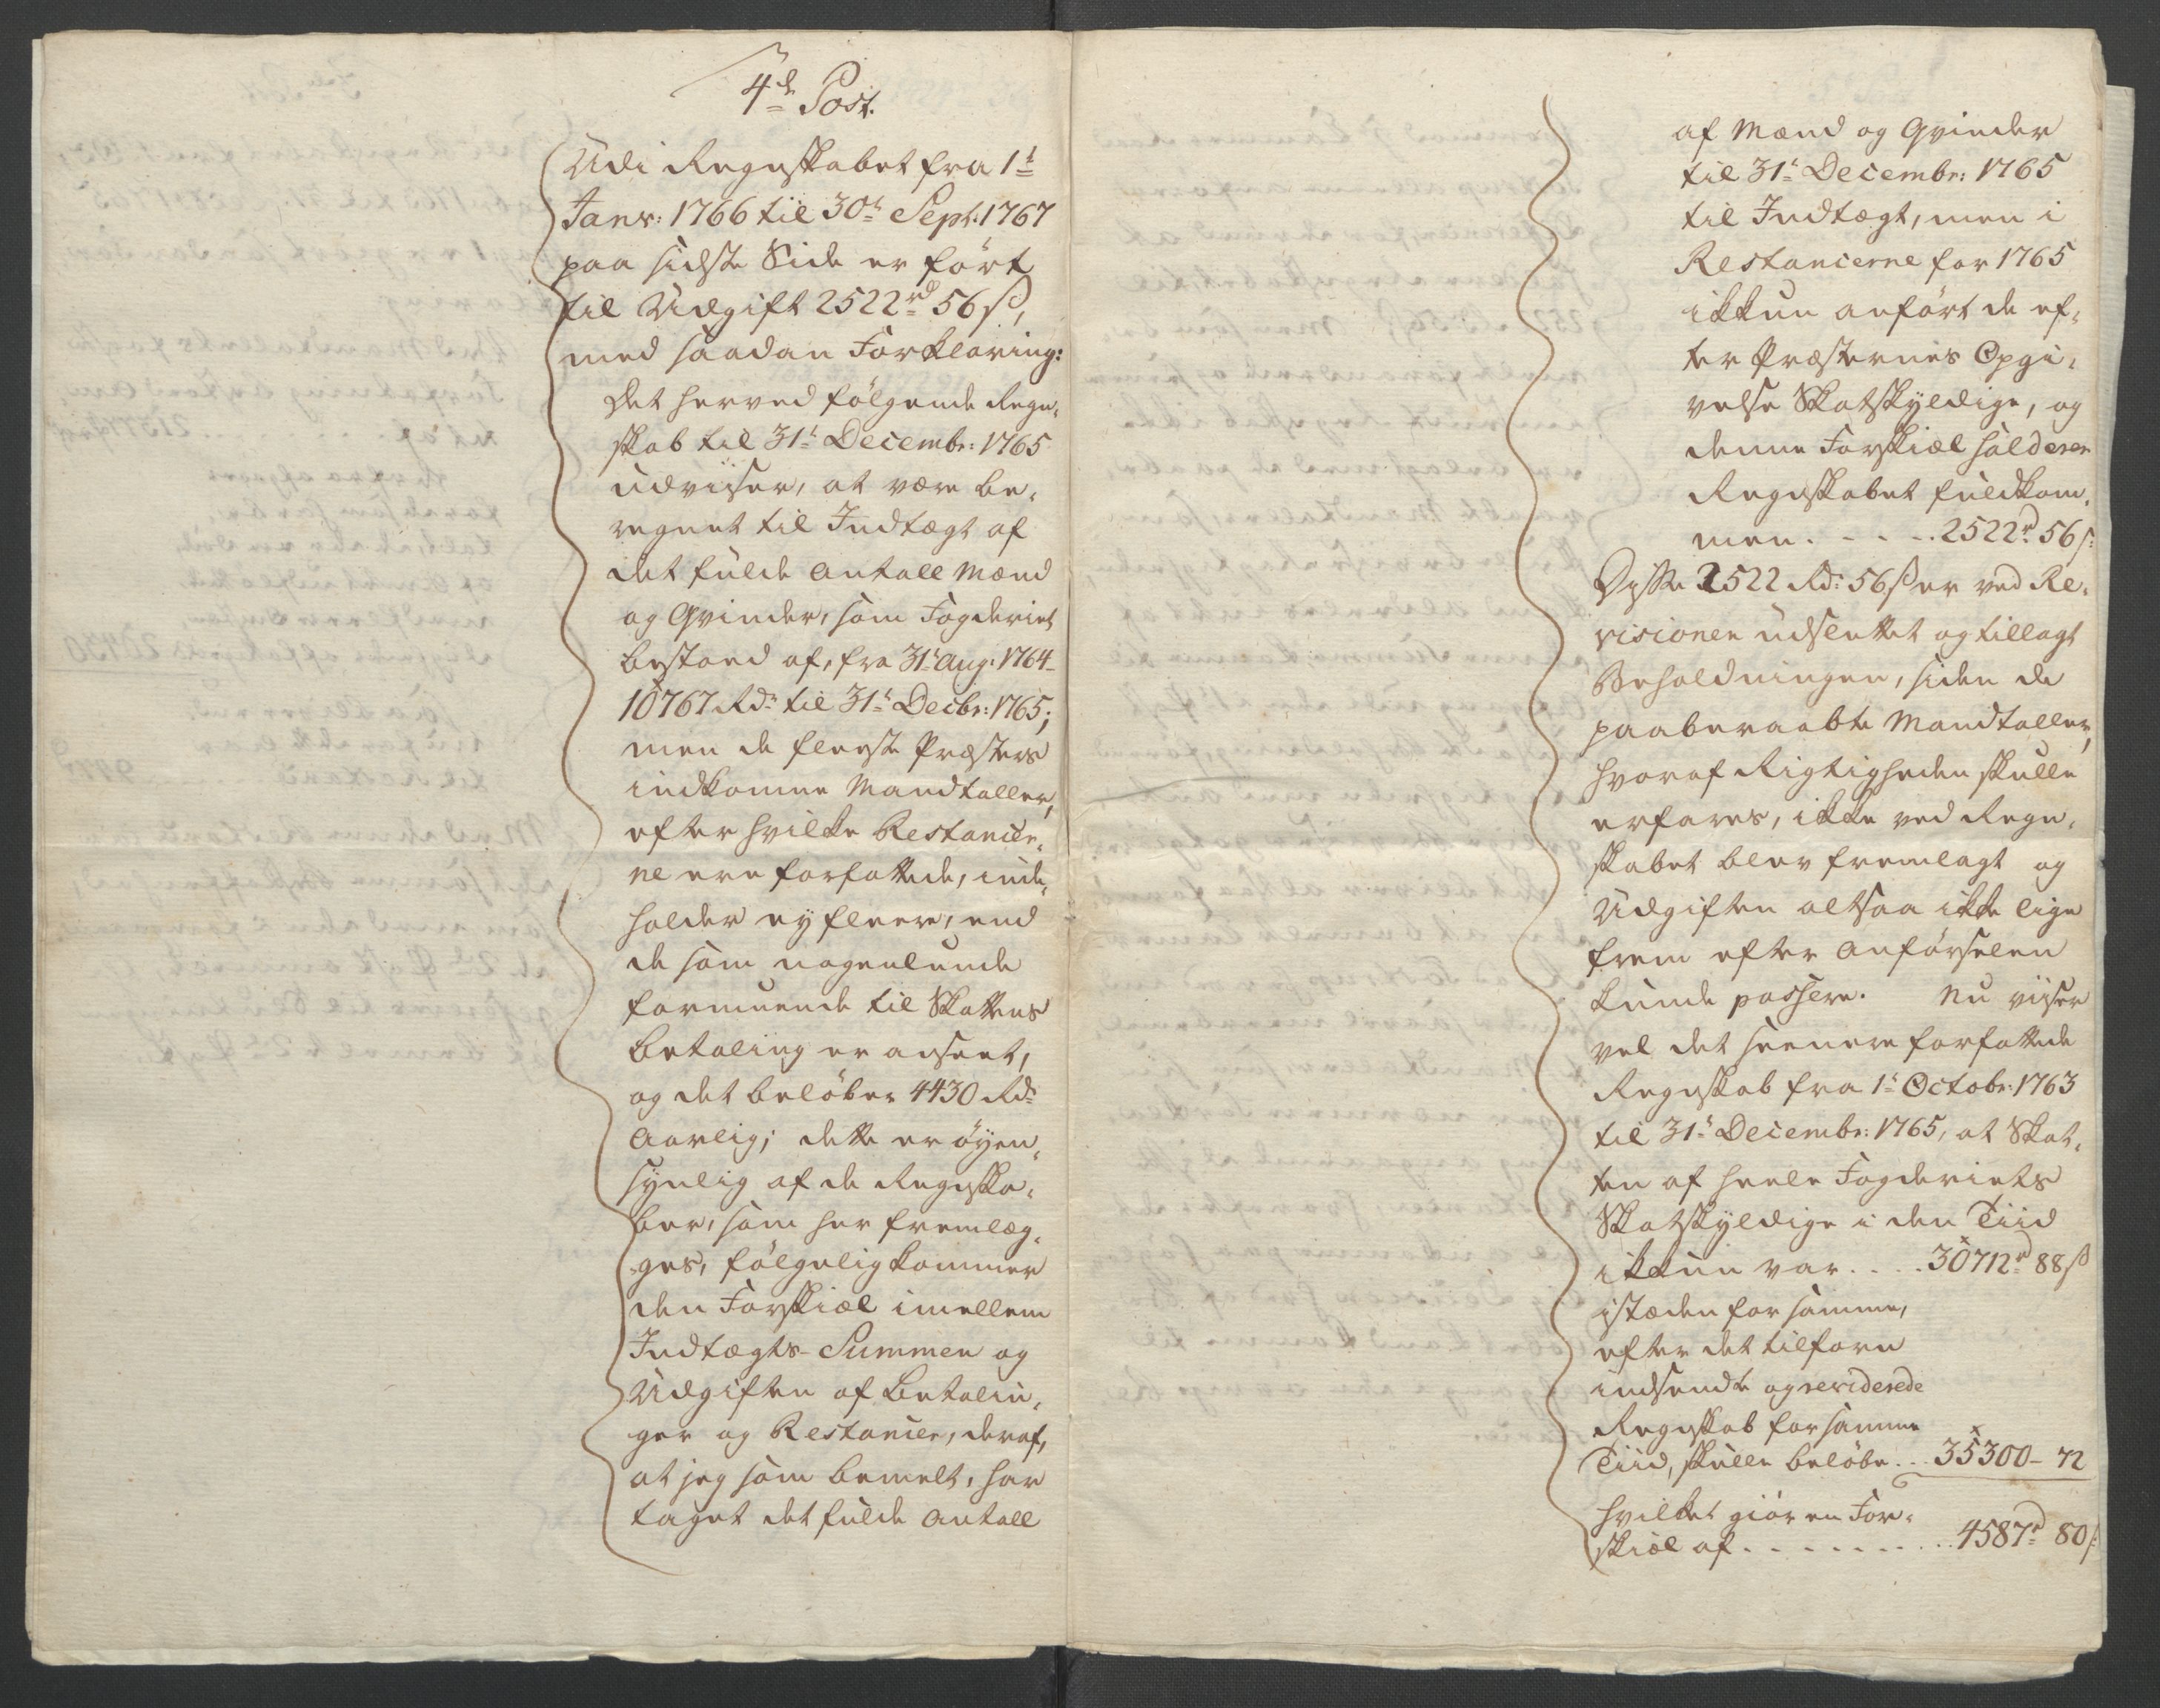 4de Post.
Udi Regnskabet fra 1t
Janr: 1766 til 30t Sept: 1767
paa sidste Side er ført
til Udgift 2522rd 56 s,
med saadan Forklaring:
Det herved følgende Regn-
skab til 31t Decembr: 1765
udviiser, at være be-
regnet til Indtægt af
det fulde Antall Mænd
og Qvinder, som Fogderiet
bestaaed af, fra 31t Aug: 1764
10767 Rdr til 31t Decbr: 1765;
men de fleeste Præsters
indkomne Mandtaller,
efter hvilke Restancer-
ne ere forfattede, inde-
holder ey fleere, end
de som nogenlunde
formuende til Skattens
Betaling er anseet,
og det beløber 4430 Rdr
Aarlig; dette er øyen-
synlig af de Regnska-
ber, som her fremlæg-
ges, følgelig kommer
den Forskiæl imellem
Indtægts-Summen og
Udgiften af Betalin-
ger og Restancer, deraf,
at jeg som bemelt, har
taget det fulde Antall
af Mænd og Qvinder
til 31t Decembr: 1765
til Indtægt, men i
Restancerne for 1765
ikkun anført de ef-
ter Præsternes Opgi-
velse Skatskyldige, og
denne Forskiæl holderer
Regnskabet fuldkom-
men. - - - . 2522rd 56 s:
Disse 2522 Rd: 56 s er ved Re-
visionen udslettet og tillagt
Beholdningen, siden de
paaberaabte Mandtaller,
hvoraf Rigtigheden skulle
erfares, ikke ved Regn-
skabet blev fremlagt og
Udgiften altsaa ikke lige
frem efter Anførselen
kunde passere. Nu viiser
vel det seenere forfattede
Regnskab fra 1t Octobr: 1763
til 31t Decembr: 1765, at Skat-
ten af heele Fogderiets
Skatskyldige i den Tiid
ikkun var . . . . 30712rd 88 s
istæden for samme,
efter det tilforn
indsendte og reviderede
Regnskab for samme
Tiid, skulle beløbe . . 35300 - 72
hvilket giør en For-
skiæl af . . . . . . . . . 4587rd 80 s: